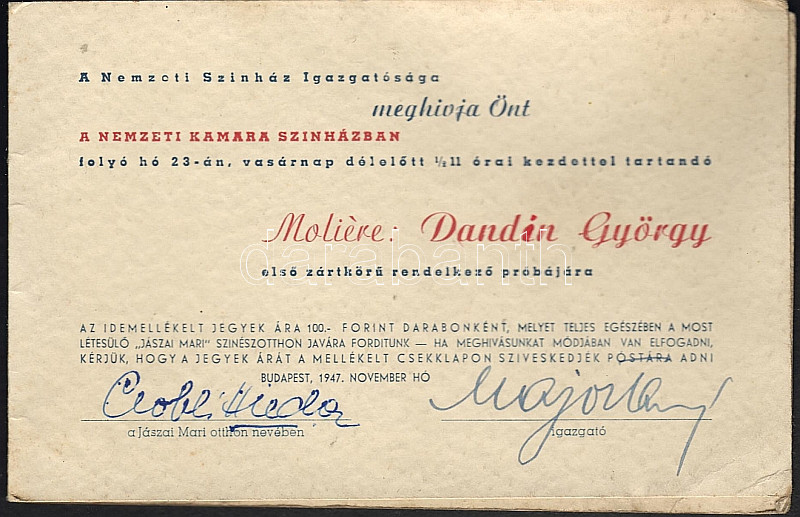 A Nemzeti Szinház Igazgatósága
meghivja Önt
A NEMZETI KAMARA SZINHÁZBAN
folyó hó 23-án, vasárnap délelőtt ½11 órai kezdettel tartandó
Molière: Dandin György
első zártkörű rendelkező próbájára
AZ IDEMELLÉKELT JEGYEK ÁRA 100.- FORINT DARABONKÉNT, MELYET TELJES EGÉSZÉBEN A MOST
LÉTESÜLŐ „JÁSZAI MARI" SZINÉSZOTTHON JAVÁRA FORDITUNK — HA MEGHIVÁSUNKAT MÓDJÁBAN VAN ELFOGADNI,
KÉRJÜK, HOGY A JEGYEK ÁRÁT A MELLÉKELT CSEKKLAPON SZIVESKEDJÉK POSTÁRA ADNI
BUDAPEST, 1947. NOVEMBER HÓ
a Jászai Mari otthon nevében
igazgató
darabanth